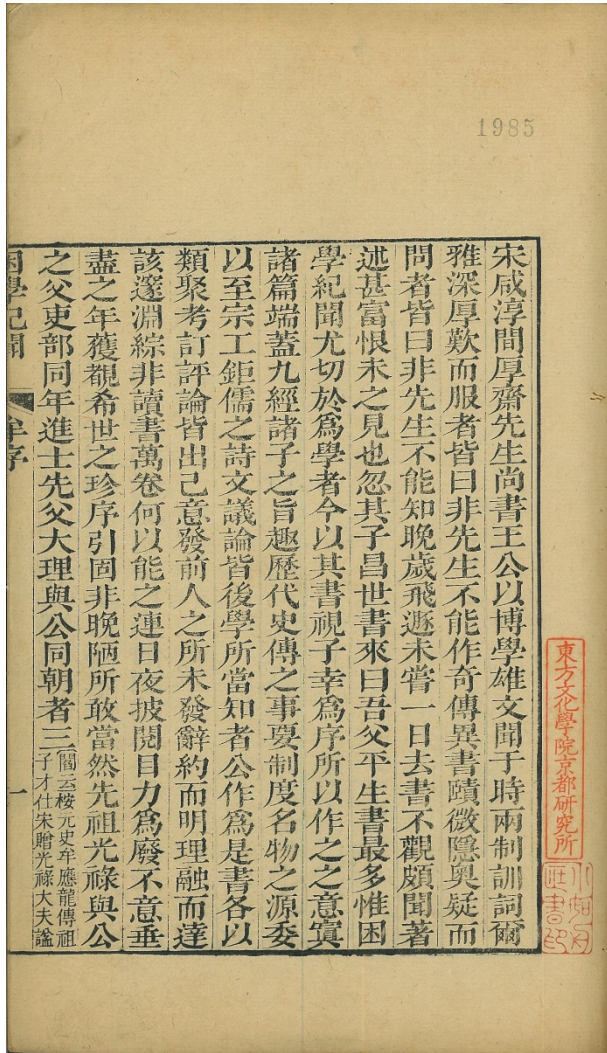 1985
宋咸淳間厚齋先生尚書王公以博學雄文聞于時兩制訓詞爾
雅深厚歎而服者皆曰非先生不能作奇傳異書賾微隱奥疑而
問者皆曰非先生不能知晚歲飛遯未嘗一日去書不觀頗聞著
述甚富恨未之見也忽其子昌世書來曰吾父平生書最多惟困
學紀聞尤切於爲學者今以其書視子幸爲序所以作之之意寘
諸篇端蓋九經諸子之旨趣歷代史傳之事要制度名物之源委
以至宗工鉅儒之詩文議論皆後學所當知者公作爲是書各以
類聚考訂評論皆出己意發前人之所未發辭約而明理融而達
該邃淵綜非讀書萬卷何以能之連日夜披閱目力爲廢不意垂
盡之年獲覩希世之珍序引固非晚陋所敢當然先祖光祿與公
之父吏部同年進士先父大理與公同朝者三
閻云桉元史牟應龍傳祖
子才仕宋贈光祿大夫諡
困學紀聞
牟序
一
東方文化學院京都研究所